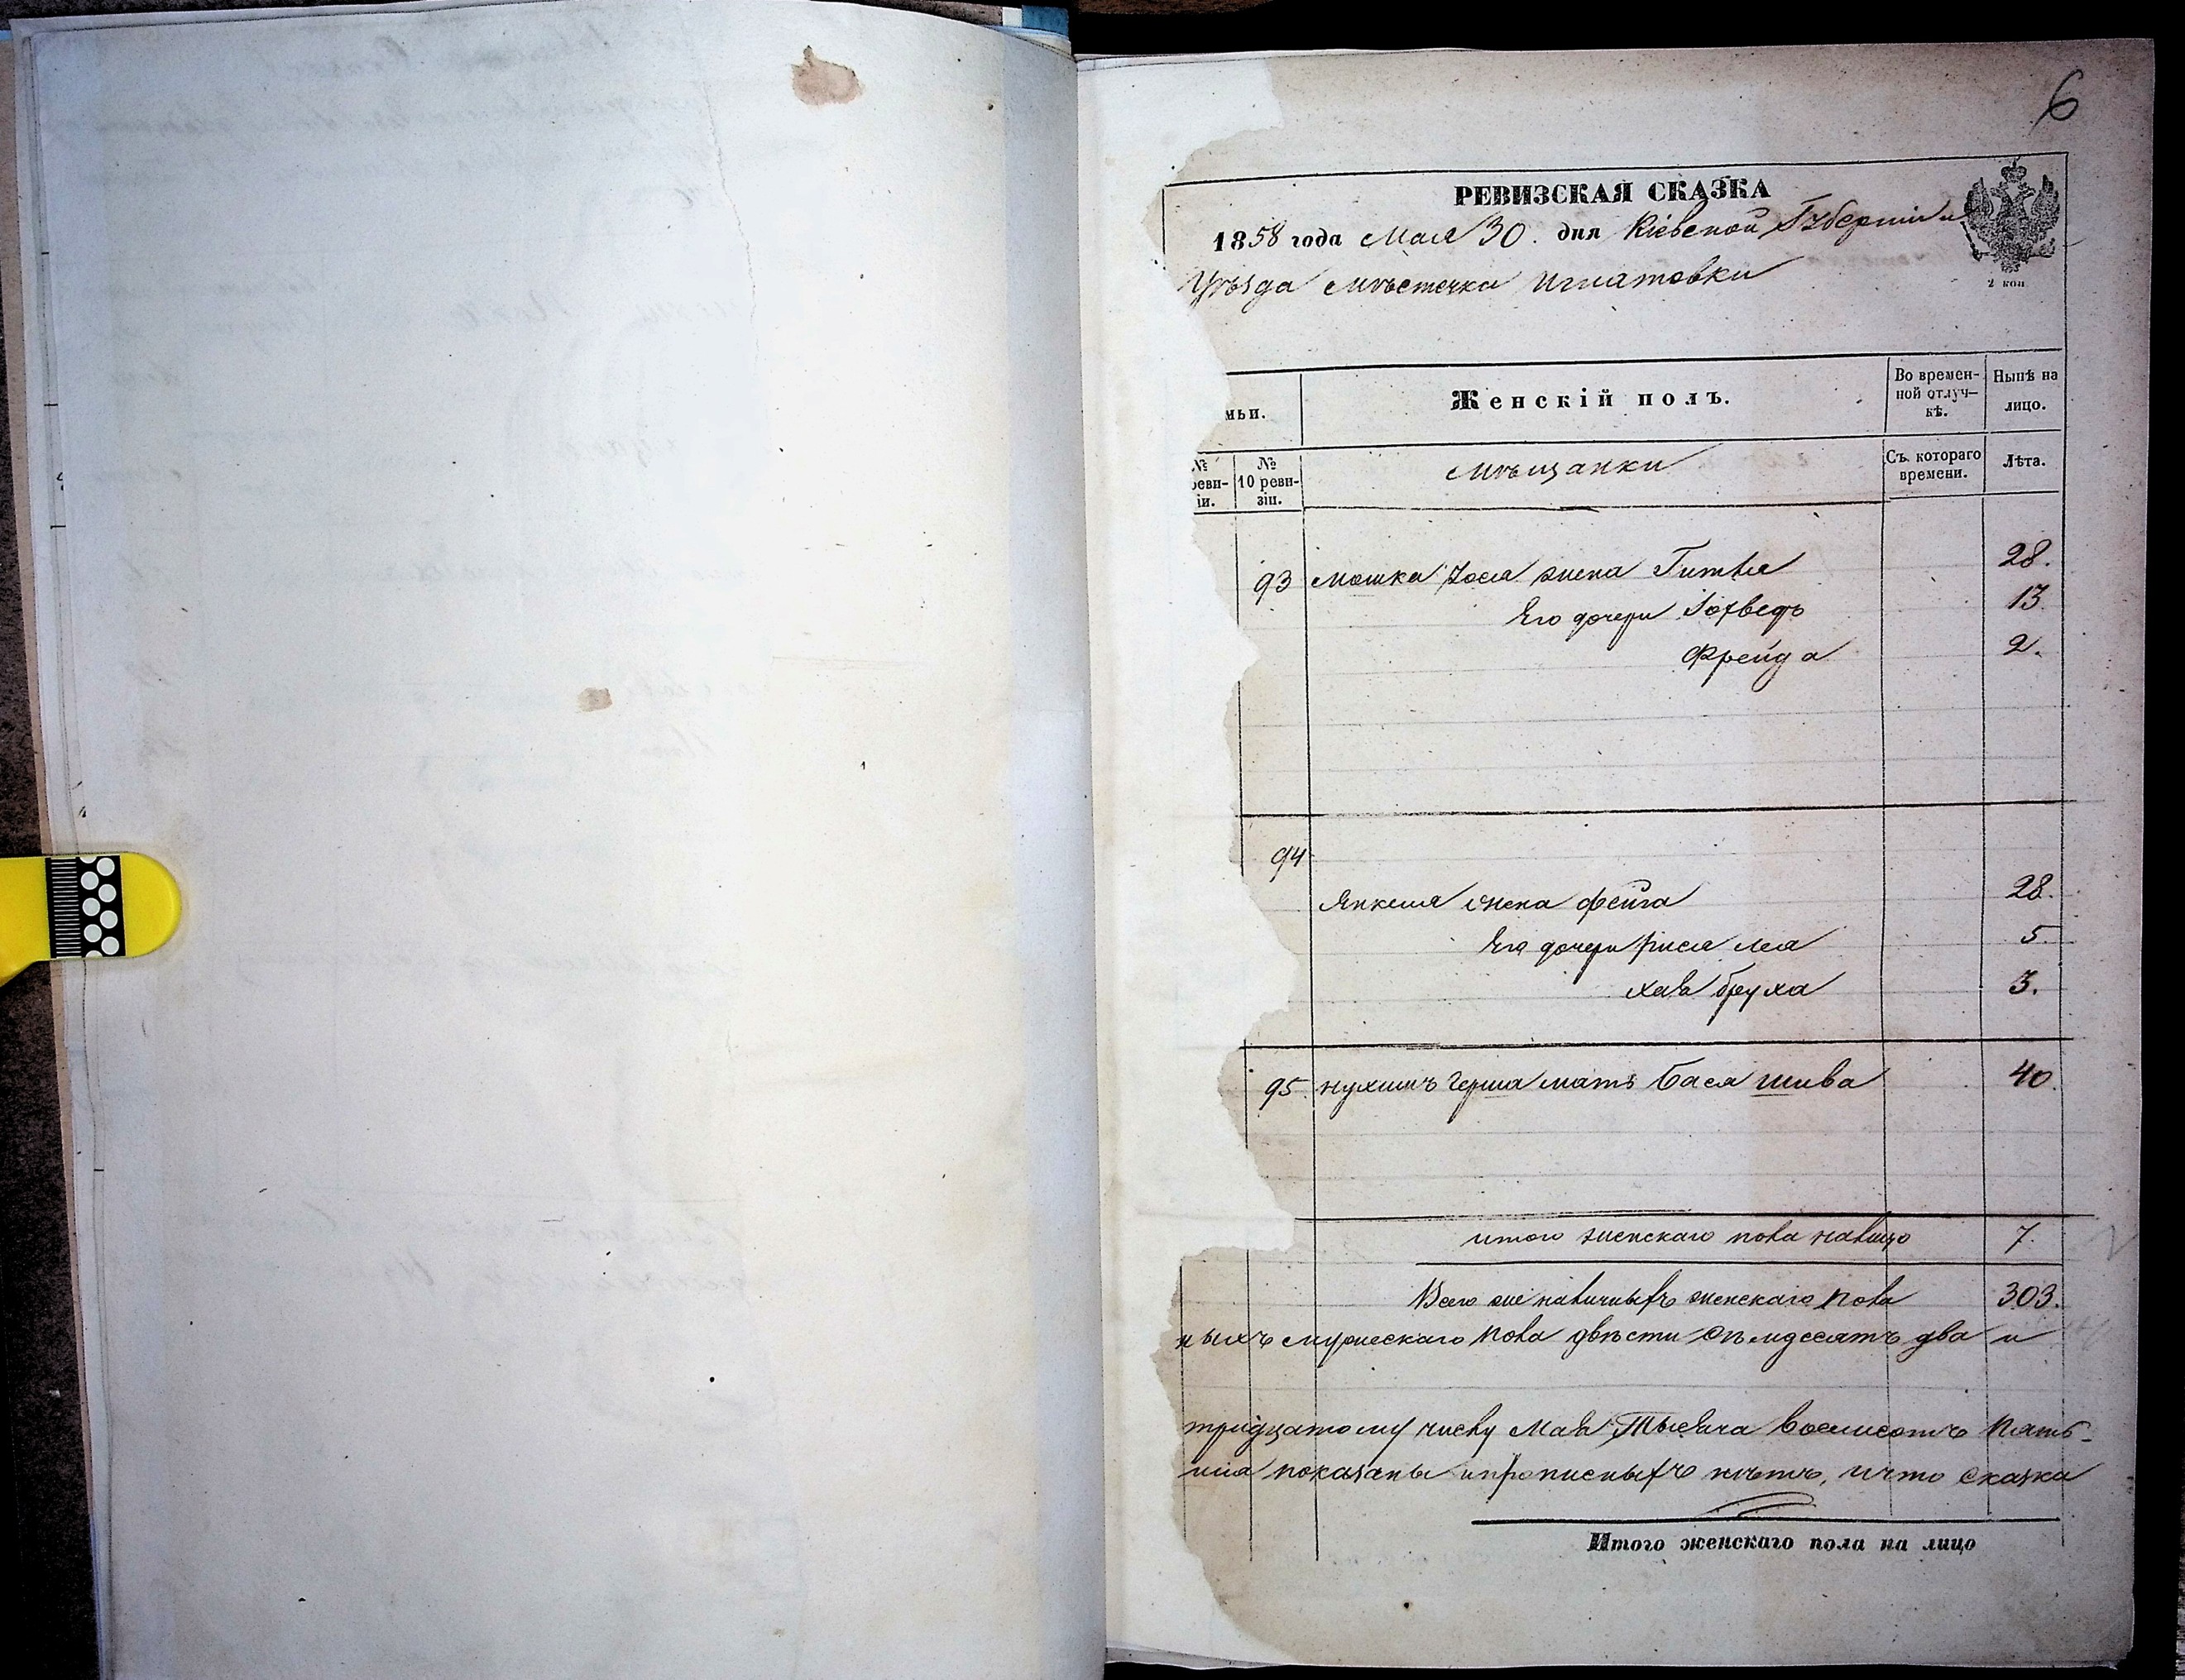 6
РЕВИЗСКАЯ СКАЗКА
1858 года Мая 30. дня Кіевской Губерніи и
Уѣзда мѣстечка Игнатовки
2 коп
мьи.
Женскій полъ.
Во времен-
ной отлуч-
кѣ.
Нынѣ на
лицо.
№
реви-
іи.
№
10 реви-
зіи.
мѣщанки
Съ котораго
времени.
Лѣта.
93 Мошка Іося жена Гитля 28.
Его дочери Іохведъ 13.
Фрейда 2.
94
Янкеля жена фейга 28.
Его дочери Рися Лея 5.
хая бруха 3.
95 нухимъ Герша мать Бася шива 40.
итого женскаго пола налицо 7.
Всего же наличныхъ женскаго пола 303.
ныхъ мужескаго пола двѣсти семдесятъ два и
тридцатому числу Мая Тысяча восемсотъ пять-
показаны и прописныхъ нѣтъ, что сказка
Итого женскаго пола на лицо